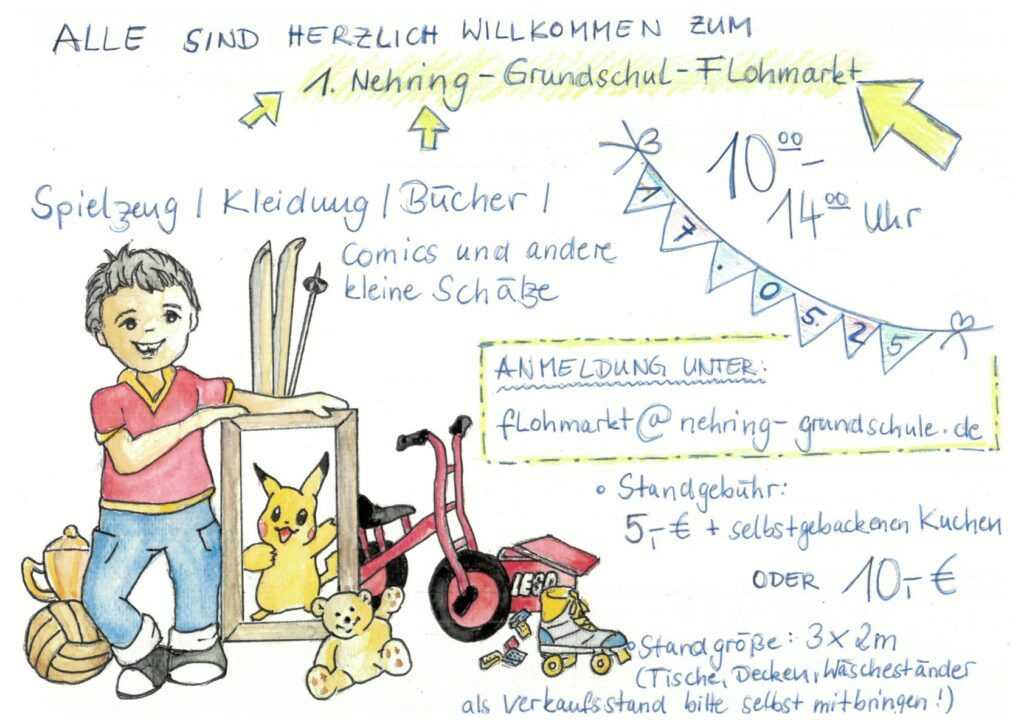 ALLE SIND HERZLICH WILLKOMMEN ZUM
1. Nehring-Grundschul-Flohmarkt
10⁰⁰-
14⁰⁰ Uhr
17.05.25
Spielzeug / Kleidung / Bücher /
Comics und andere
kleine Schätze
ANMELDUNG UNTER:
flohmarkt@nehring-grundschule.de
• Standgebühr:
5,-€ + selbstgebackenen Kuchen
ODER 10,-€
LEGO
• Standgröße: 3x2m
(Tische, Decken, Wäscheständer
als Verkaufsstand bitte selbst mitbringen!)